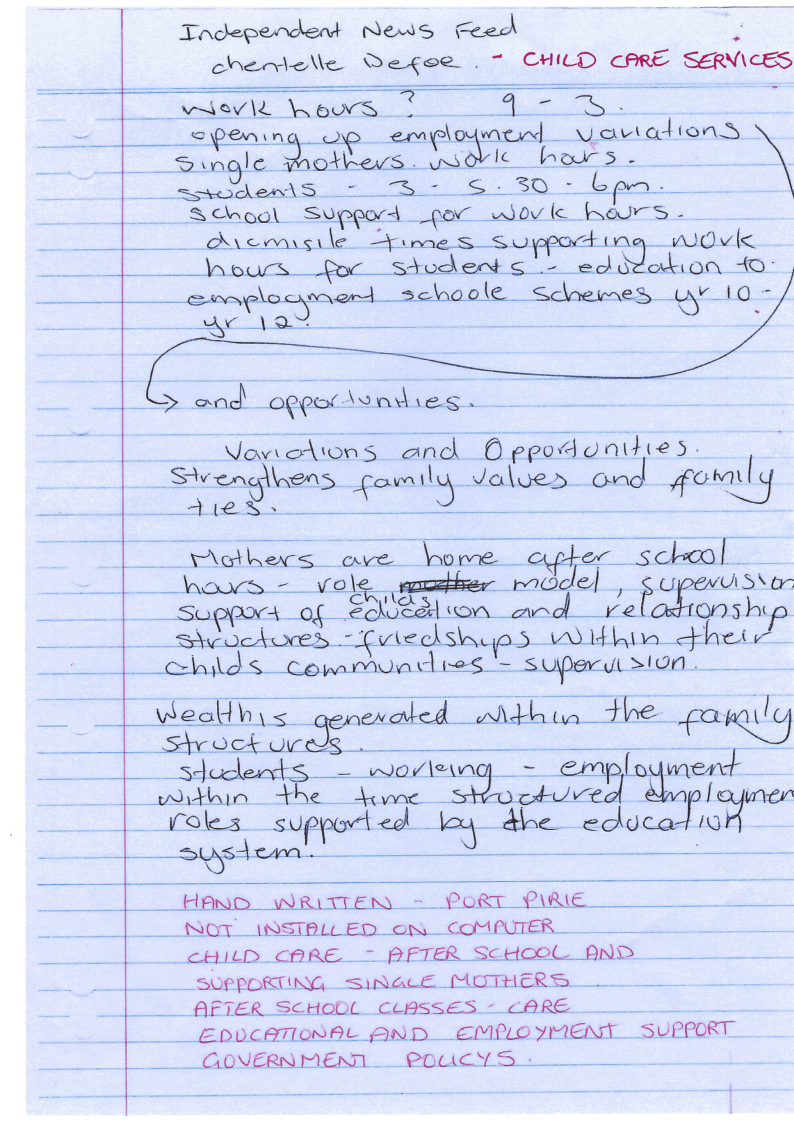 Independent News Feed
chentelle Defoe. - CHILD CARE SERVICES
Work hours? 9 - 3.
opening up employment variations
single mothers. work hours.
students - 3 - 5.30 - 6pm.
school support for work hours.
dicmisile times supporting work
hours for students - education to
employment schoole schemes yr 10 -
yr 12.
→ and opportunities.
Variations and Opportunities.
Strengthens family values and family
ties.
Mothers are home after school
hours - role mother model, supervision
childs
support of education and relationship
structures - friedships within their
childs communities - supervision.
Wealth is generated within the family
structures.
students - working - employment
within the time structured employmen
roles supported by the education
system.
HAND WRITTEN - PORT PIRIE
NOT INSTALLED ON COMPUTER
CHILD CARE - AFTER SCHOOL AND
SUPPORTING SINGLE MOTHERS
AFTER SCHOOL CLASSES - CARE
EDUCATIONAL AND EMPLOYMENT SUPPORT
GOVERNMENT POLICYS.